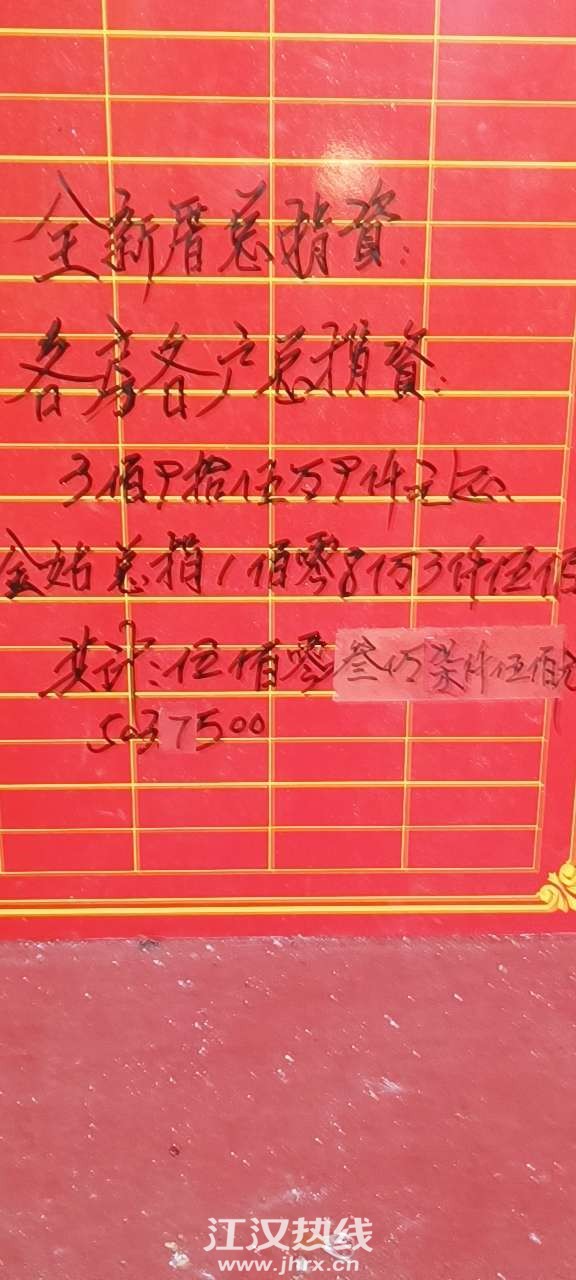 全新厝总捐資：
各房各户总捐資：
3佰9拾伍万4仟元正
全姑总捐1佰零8万3仟伍佰
共计：伍佰零叁万柒仟伍佰元
5037500
江汉热线
www.jhrx.cn